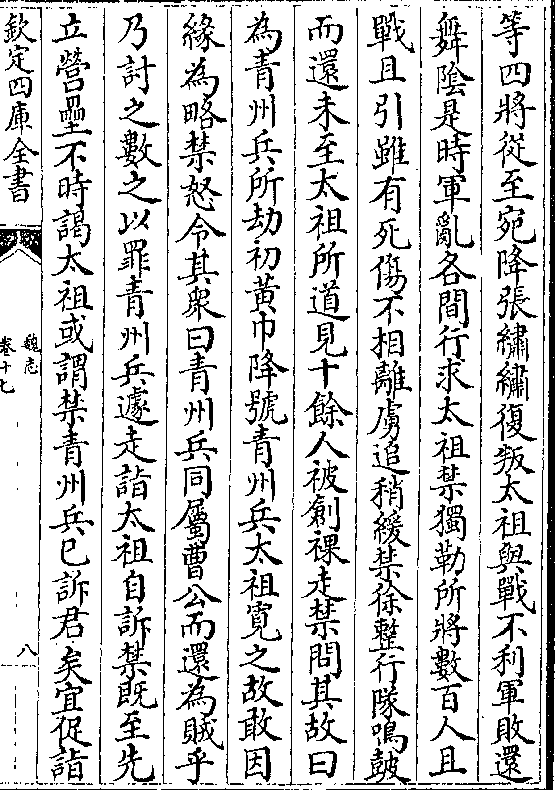 等四將從至宛降張繡繡復叛太祖與戰不利軍敗還
舞陰是時軍亂各間行求太祖禁獨勒所將數百人且
戰且引雖有死傷不相離虜追稍緩禁徐整行隊鳴鼓
而還未至太祖所道見十餘人被創裸走禁問其故曰
為青州兵所劫初黃巾降號青州兵太祖寬之故敢因
緣為略禁怒令其衆曰青州兵同屬曹公而還為賊乎
乃討之數之以罪青州兵遽走詣太祖自訴禁既至先
立營壘不時謁太祖或謂禁青州兵已訴君矣宜促詣
欽定四庫全書
魏志
卷十七
八